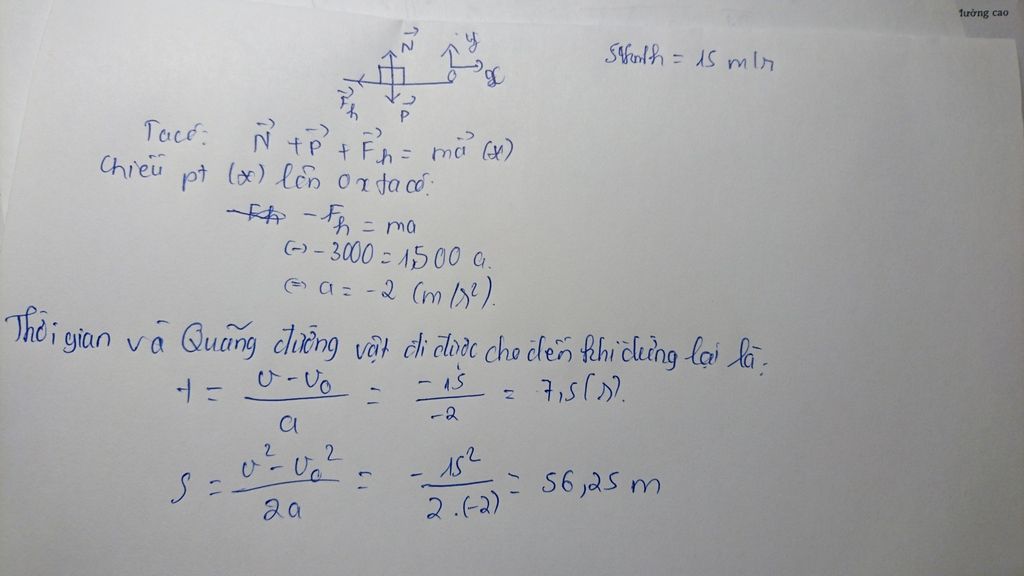 lường cao
54km/h = 15 m/s
N y
O x
Fh P
Ta có: N + P + Fh = ma (*)
Chiếu pt (*) lên Ox ta có:
- Fh = ma
(=) - 3000 = 1,500 a.
(=) a = -2 (m/s²).
Thời gian và Quãng đường vật đi được cho đến khi dừng lại là:
t = (v - v₀)/a = -15/-2 = 7,5(s).
S = (v² - v₀²)/2a = -15²/2.(-2) = 56,25 m